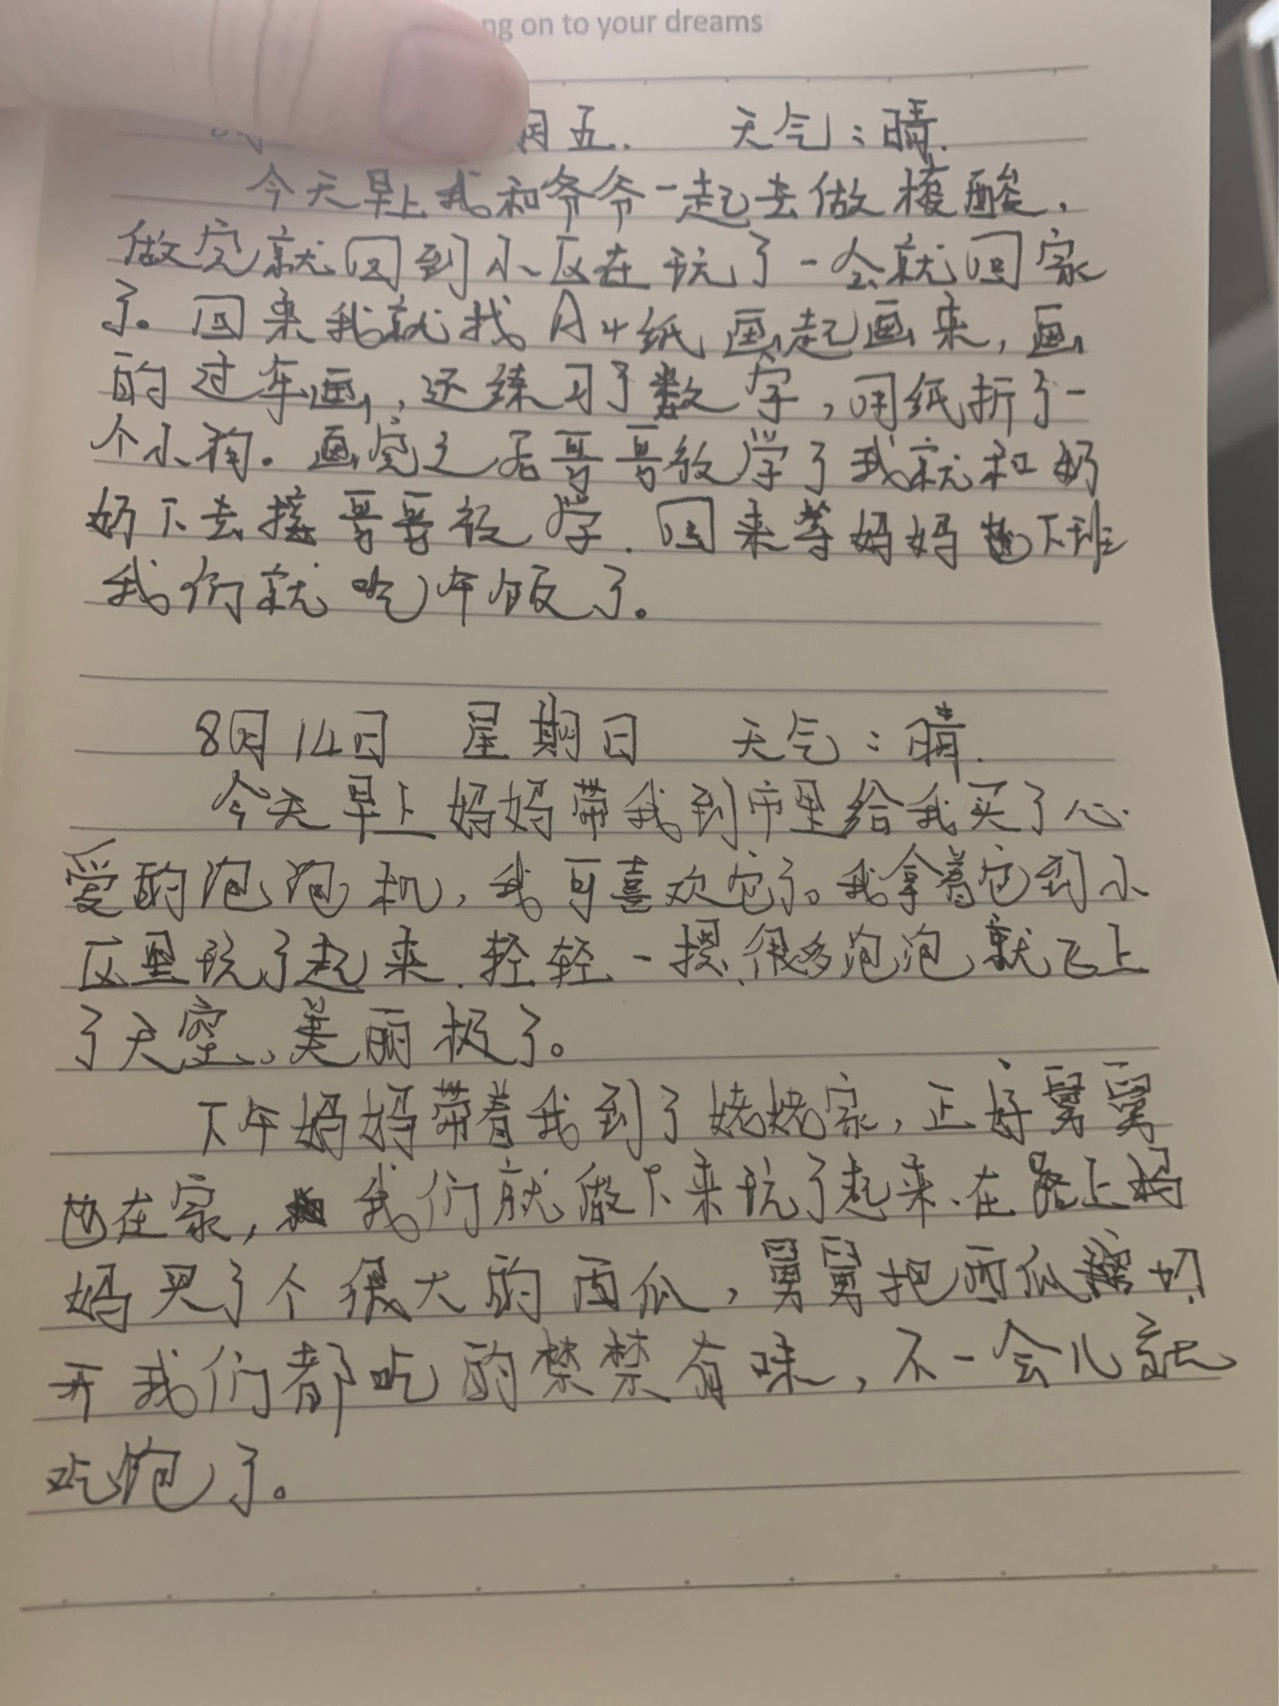 ng on to your dreams
期五. 天气：晴.
今天早上我和爷爷一起去做核酸，
做完就回到小区在玩了一会就回家
了。回来我就找A4纸画起画来，画
的过年画，还练习了数字，用纸折了一
个小狗。画完之后哥哥放学了我就和奶
奶下去接哥哥放学.回来等妈妈也下班
我们就吃午饭了。
8月14日 星期日 天气：晴.
今天早上妈妈带我到市里给我买了心
爱的泡泡机，我可喜欢它了。我拿着它到小
区里玩了起来.轻轻一摁,很多泡泡就飞上
了天空、美丽极了。
下午妈妈带着我到了姥姥家，正好舅舅
也在家，我们就做下来玩了起来、在路上妈
妈买了个很大的西瓜，舅舅把西瓜切
开我们都吃的禁禁有味，不一会儿就
吃饱了。